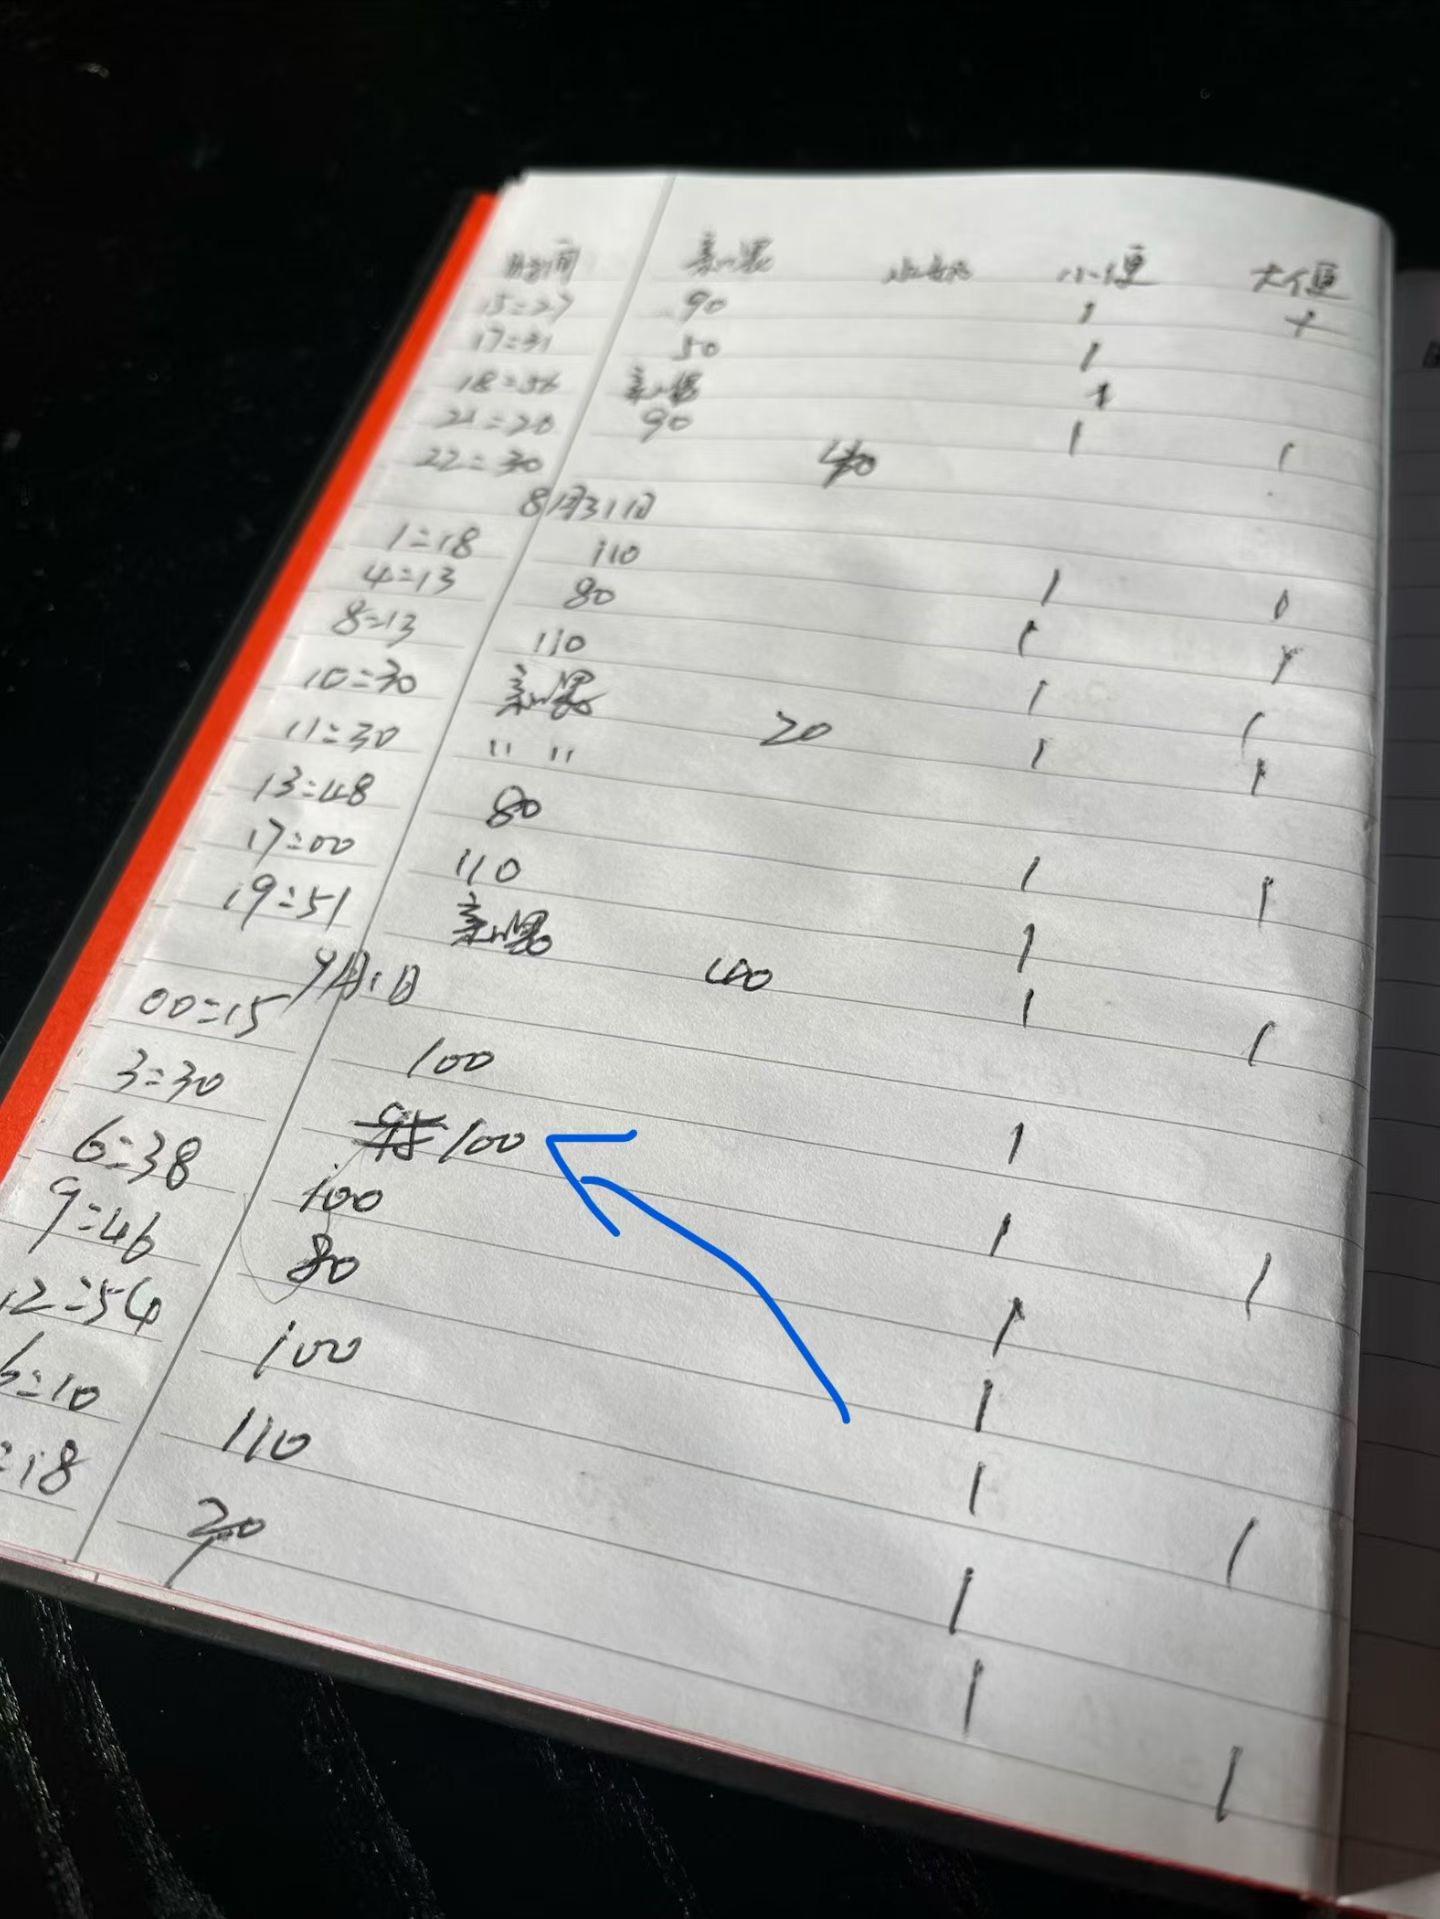 时间 亲喂 水奶 小便 大便
15:27 90 1 1
17:31 50 1
18:56 亲喂 1
21:20 90 1 1
22:30 40
8月31日
1:18 110 1 1
4:13 80 1 1
8:13 110 1 1
10:30 亲喂 20 1 1
11:30 " "
13:48 80 1 1
17:00 110 1
19:51 亲喂 40 1 1
9月1日
00:15 100 1
3:30 95 100 1 1
6:38 100 1
9:46 80 1
12:54 100 1 1
6:10 110 1
:18 20 1 1